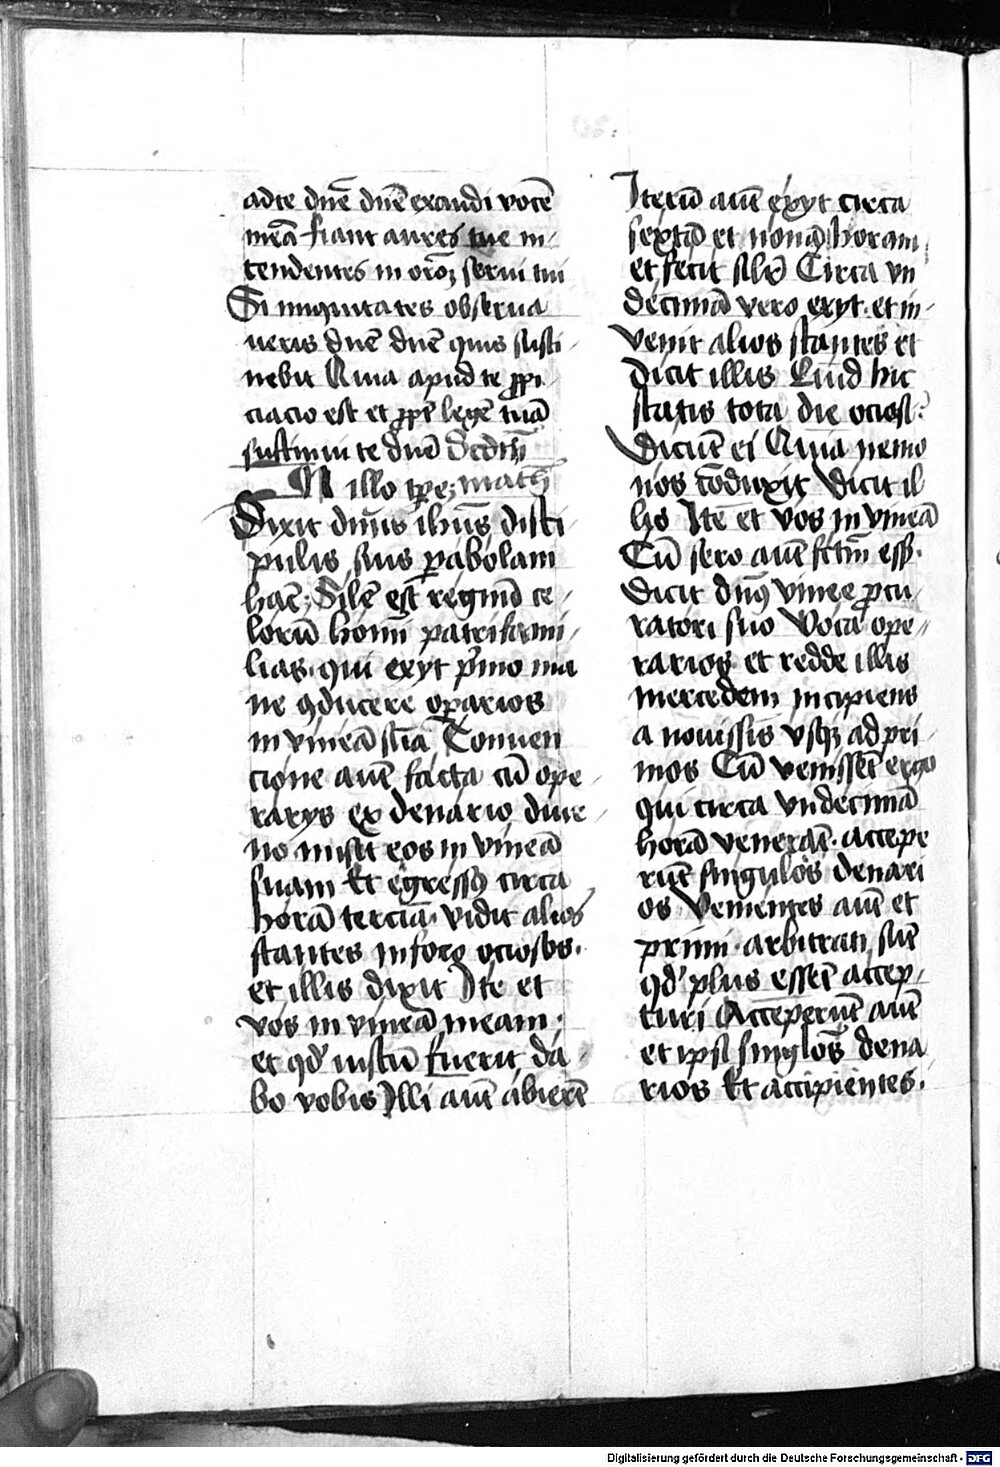 adte dn̄e dn̄e exaudi vocē
meā fiant aures tue in⸗
tendentes in or̄oꝫ serui tui
Si iniquitates obserua
ueris dn̄e dn̄e quis susti⸗
nebit Quia apud te ꝓpi⸗
ciacio est et ꝓpt̄ legē tuā
sustinui te dn̄e
IN illo tꝑe; math
Dixit dn̄us ih̄us disci⸗
pulis suis parabolam
haēc; Sil̄e est regnū ce⸗
lorū hom̄i patrifami⸗
lias. qui exyt p̄mo ma
ne ꝯducere oꝑarios
in vineā suā Conuen
cione aut̄ facta cū ope⸗
rarys ex denario diur⸗
no misit eos in vineā
suam Et egressꝯ circa
horā terciā. vidit alios
stantes in foro ociosos.
et illis dixit Ite et
vos in vineā meam.
et qd' iustū fuerit da⸗
bo vobis Illi aut̄ abierūt
Iterū aut̄ exyt circa
sextā et nonā horam
et fecit sil̄r Circa vn
decimā vero exyt. et in⸗
venit alios stantes et
dicit illis Quid hic
statis tota die ociosi?
Dicūt ei Quia nemo
nos cōduxit Dicit il
lis Ite et vos in vineā
Cū sero aut̄ fc̄tm̄ ess;.
dicit dn̄ꝯ vinee ꝓcu⸗
ratori suo Voca ope⸗
rarios et redde illis
mercedem incipiens
a nouissīs vsqꝫ ad pri⸗
mos Cū venissēt ergo
qui circa vndecimā
horā venerāt. accepe
rūt singulos denari
os Venientes aut̄ et
primi. arbitrati sūt
qd' plus essēt accep⸗
turi Acceperūt aut̄
et ipsi singlo̅s dena
rios Et accipientes.
Digitalisierung gefördert durch die Deutsche Forschungsgemeinschaft - DFG